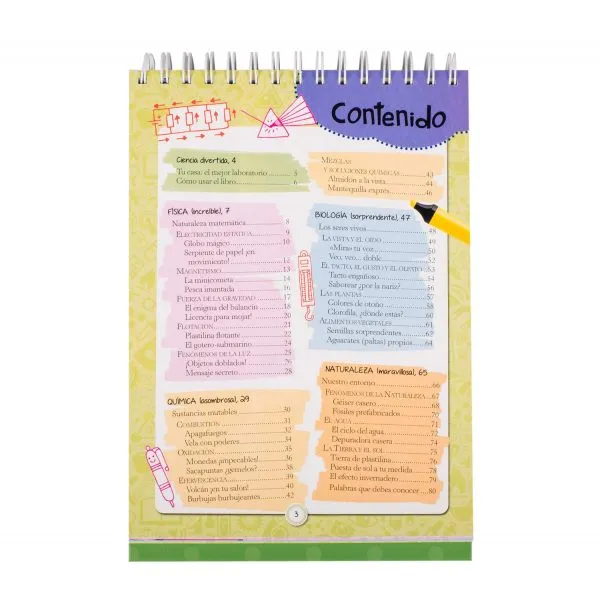 Contenido
Ciencia divertida, 4
Tu casa: el mejor laboratorio 5
Cómo usar el libro 6
FÍSICA (increíble), 7
Naturaleza matemática 8
ELECTRICIDAD ESTÁTICA 9
Globo mágico 10
Serpiente de papel ¡en
movimiento! 12
MAGNETISMO 13
La minicometa 14
Pesca imantada 16
FUERZA DE LA GRAVEDAD 17
El enigma del balancín 18
Licencia ¡para mojar! 20
FLOTACIÓN 21
Plastilina flotante 22
El gotero-submarino 24
FENÓMENOS DE LA LUZ 25
¡Objetos doblados! 26
Mensaje secreto 28
QUÍMICA (asombrosa), 29
Sustancias mutables 30
COMBUSTIÓN 31
Apagafuegos 32
Vela con poderes 34
OXIDACIÓN 35
Monedas ¡impecables! 36
Sacapuntas ¿gemelos? 38
EFERVESCENCIA 39
Volcán ¡en tu salón! 40
Burbujas burbujeantes 42
MEZCLAS
Y SOLUCIONES QUÍMICAS 43
Almidón a la vista 44
Mantequilla exprés 46
BIOLOGÍA (sorprendente), 47
Los seres vivos 48
LA VISTA Y EL OÍDO 49
«Mira» tu voz 50
Veo, veo... doble 52
EL TACTO, EL GUSTO Y EL OLFATO 53
Tacto engañoso 54
Saborear ¿por la nariz? 56
LAS PLANTAS 57
Colores de otoño 58
Clorofila, ¿dónde estás? 60
ALIMENTOS VEGETALES 61
Semillas sorprendentes 62
Aguacates (paltas) propios 64
NATURALEZA (maravillosa), 65
Nuestro entorno 66
FENÓMENOS DE LA NATURALEZA 67
Géiser casero 68
Fósiles prefabricados 70
EL AGUA 71
El ciclo del agua 72
Depuradora casera 74
LA TIERRA Y EL SOL 75
Tierra de plastilina 76
Puesta de sol a tu medida 78
El efecto invernadero 79
Palabras que debes conocer 80
3